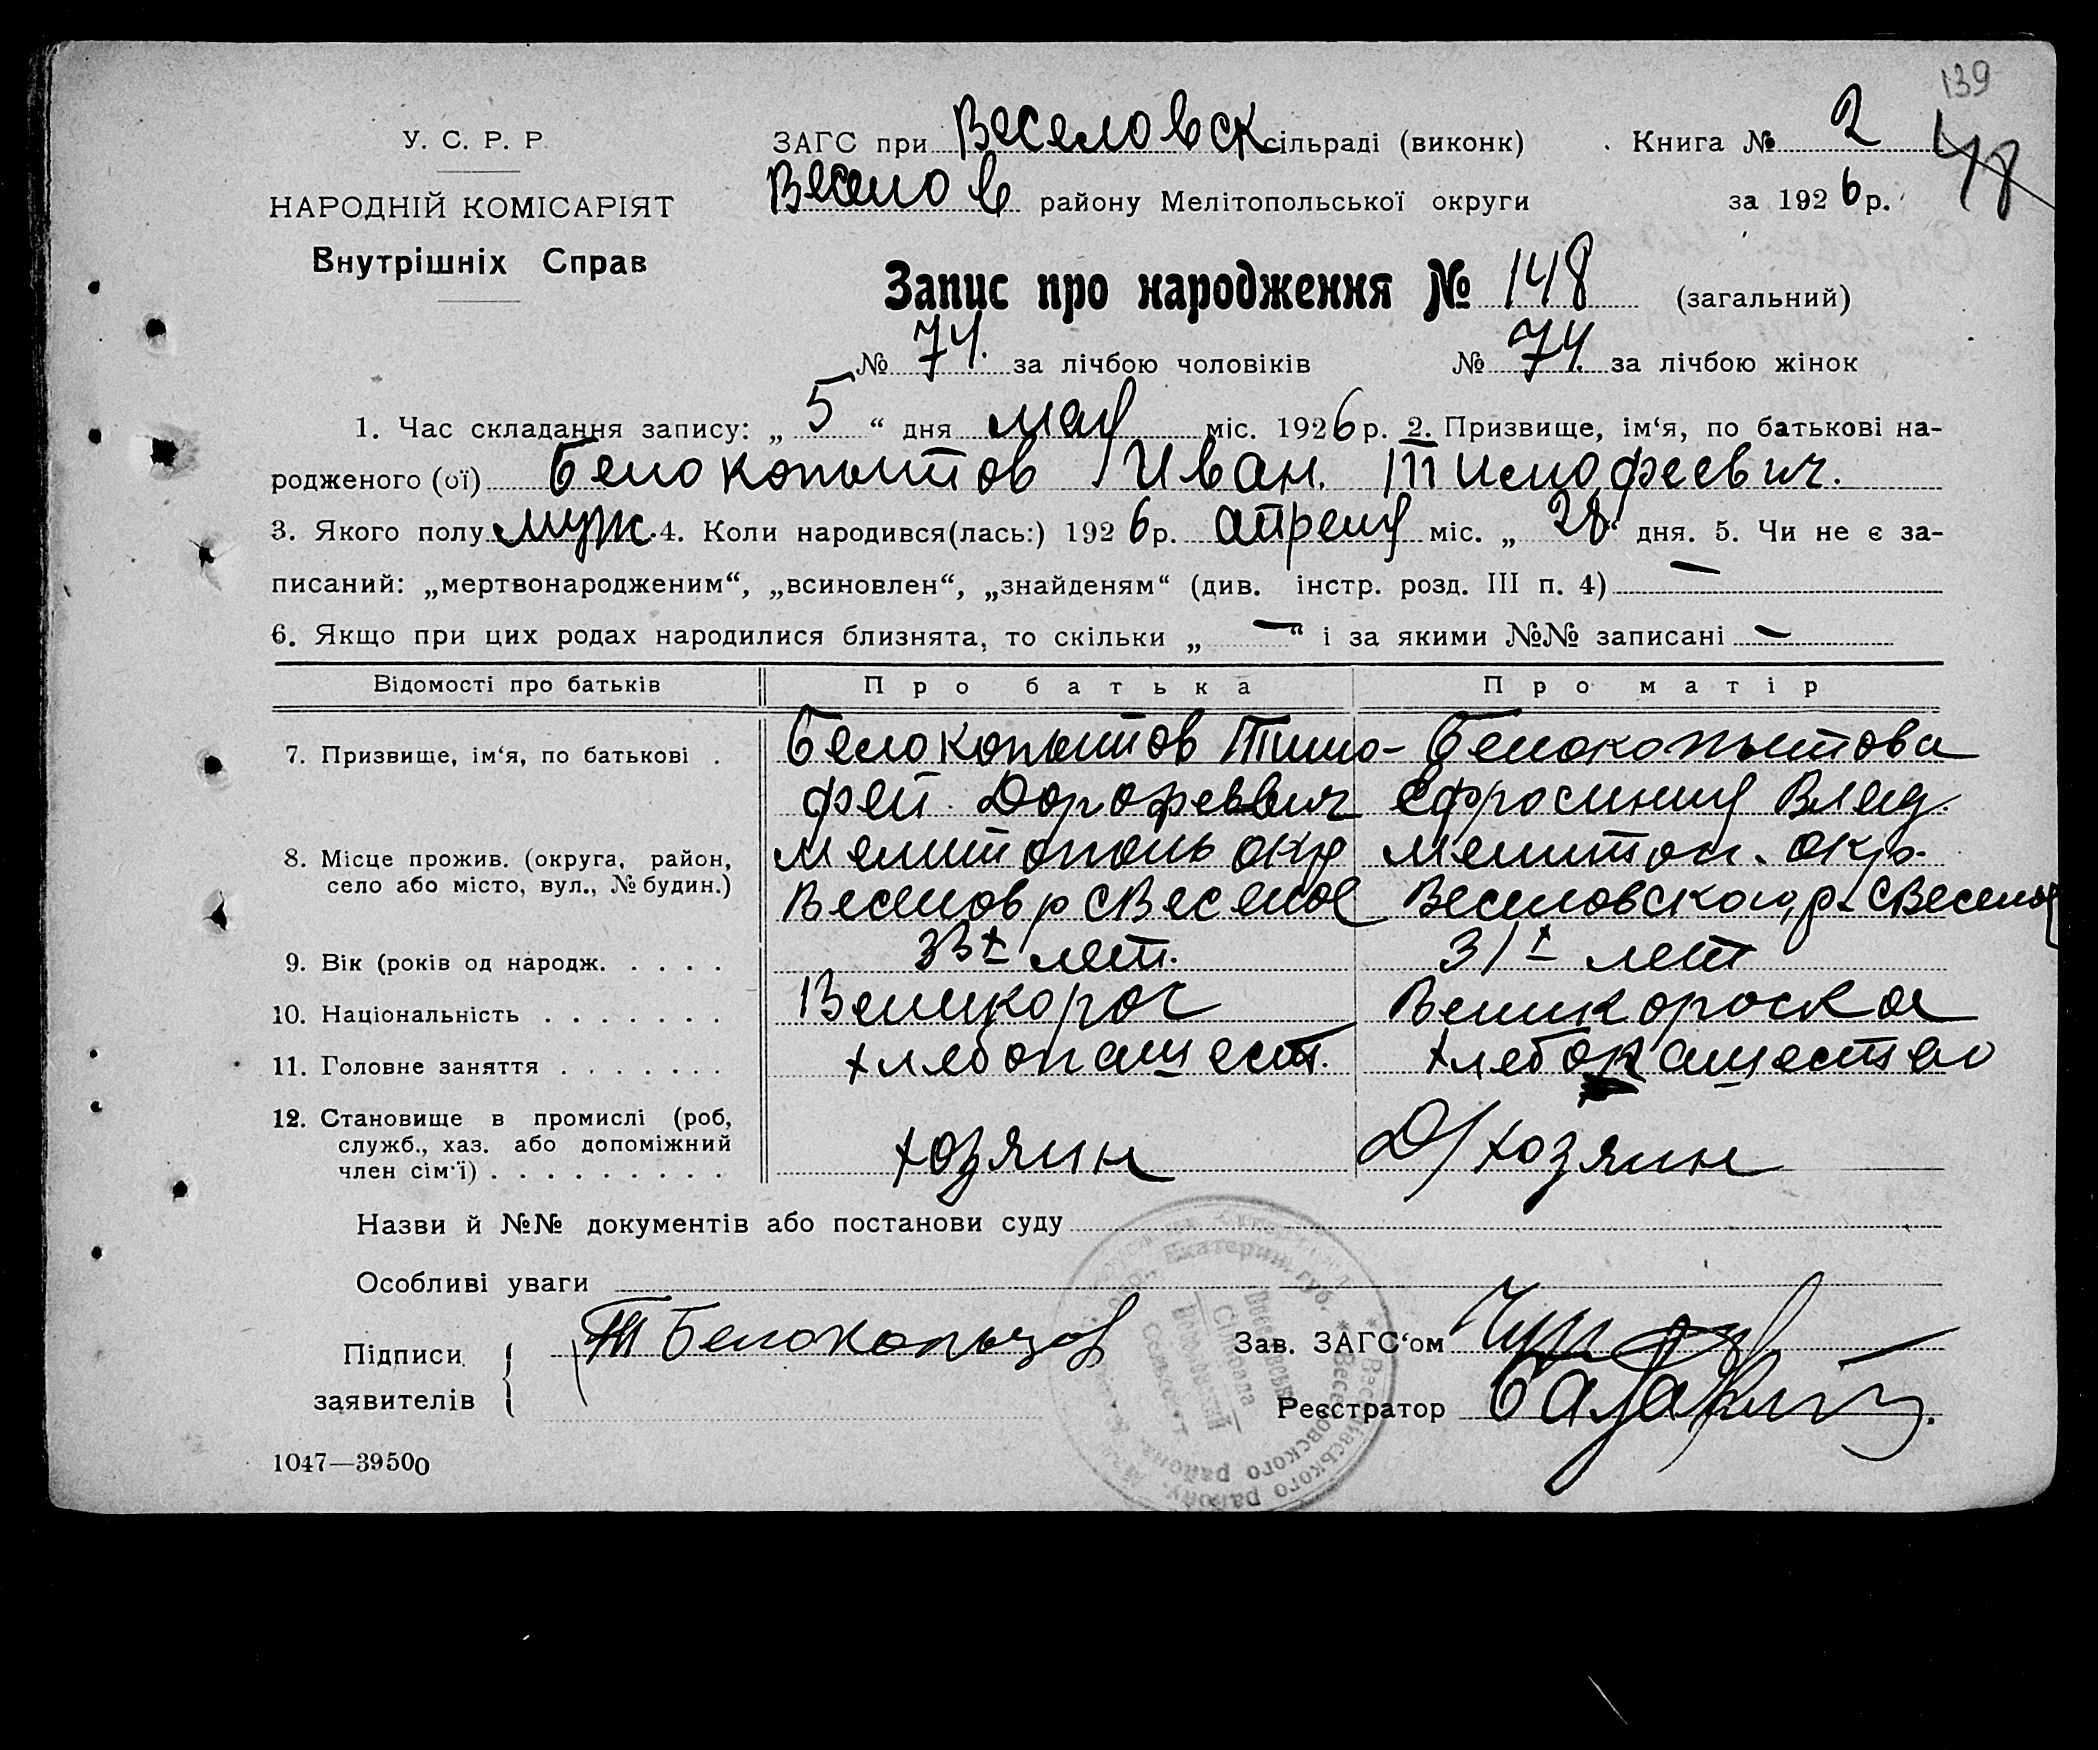 139
У. С. Р. Р.
НАРОДНІЙ КОМІСАРІЯТ
Внутрішніх Справ
ЗАГС при Веселовск сільраді (виконк) Книга № 2
48
Веселов району Мелітопольської округи за 1926 р.
Запис про народження № 148 (загальний)
№ 74. за лічбою чоловіків № 74. за лічбою жінок
1. Час складання запису: „ 5 “ дня мая міс. 1926 р. 2. Призвище, ім‘я, по батькові на-
родженого (ої) Белокопытов Иван. Тимофеевич.
3. Якого полу муж. 4. Коли народився(лась:) 1926 р. апреля міс. „ 28 “ дня. 5. Чи не є за-
писаний: „мертвонародженим“, „всиновлен“, „знайденям“ (див. інстр. розд. III п. 4) —
6. Якщо при цих родах народилися близнята, то скільки „ — “ і за якими №№ записані —
Відомості про батьків Про батька Про матір
7. Призвище, ім‘я, по батькові . Белокопытов Тимо- Белокопытова
фей Дорофеевич Ефросиния Влад.
8. Місце прожив. (округа, район, Мелитополь окр Мелитоп. окр.
село або місто, вул., № будин.) Веселов р С Веселое Веселовского, р. С Веселое
9. Вік (років од народж. . . . . 33 х лет. 31 х лет
10. Національність . . . . . . . Великорос Великороска
11. Головне заняття . . . . . . . хлебопашест. хлебопашество
12. Становище в промислі (роб,
служб., хаз. або допоміжний хозяин Д/хозяин
член сім‘ї) . . . . . . . . .
Назви й №№ документів або постанови суду
Особливі уваги
Підписи заявителів Т Белокопытов
Зав. ЗАГС‘ом
Реєстратор
Екатерин. губ.
Сільрада
Веселовского района
Веселівського району
1047—39500